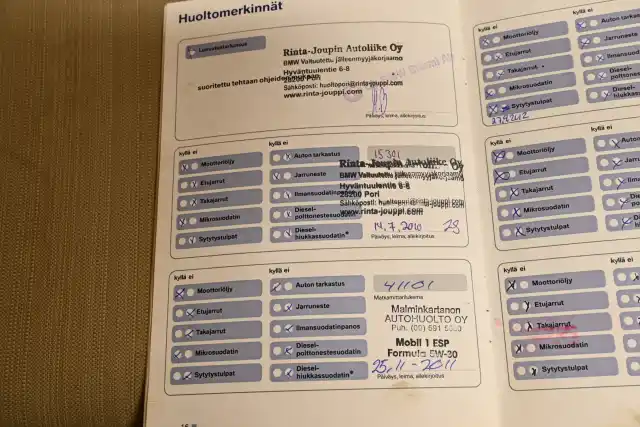 Huoltomerkinnät
Luovutustarkastus
suoritettu tehtaan ohjeiden mukaan
Rinta-Joupin Autoliike Oy
BMW Valtuutettu jälleenmyyjäkorjaamo
Hyväntuulentie 6-8
28200 Pori
Sähköposti: huoltopori@rinta-jouppi.com
www.rinta-jouppi.com
Päiväys, leima, allekirjoitus
kyllä ei
Moottoriöljy
Etujarrut
Takajarrut
Mikrosuodatin
Sytytystulpat
kyllä ei
Auton tarkastus
Jarruneste
Ilmansuodatinpanos
Diesel-
polttonestesuodatin
Diesel-
hiukkassuodatin*
15301
Rinta-Joupin Autoliike Oy
BMW Valtuutettu jälleenmyyjäkorjaamo
Hyväntuulentie 6-8
28200 Pori
Sähköposti: huoltopori@rinta-jouppi.com
www.rinta-jouppi.com
14.7.2010
Päiväys, leima, allekirjoitus
kyllä ei
Moottoriöljy
Etujarrut
Takajarrut
Mikrosuodatin
Sytytystulpat
kyllä ei
Auton tarkastus
Jarruneste
Ilmansuodatinpanos
Diesel-
polttonestesuodatin
Diesel-
hiukkassuodatin*
41101
Matkamittarilukema
Malminkartanon
AUTOHUOLTO OY
Mobil 1 ESP
Formula 5W-30
25.11-2011
Päiväys, leima, allekirjoitus
kyllä ei
Moottoriöljy
Etujarrut
Takajarrut
Mikrosuodatin
Sytytystulpat
kyllä ei
Auton
Jarruneste
Ilmansuod
Diesel-
polttones
Diesel-
hiukkass
kyllä ei
Moottoriöljy
Etujarrut
Takajarrut
Mikrosuodatin
Sytytystulpat
kyllä ei
Auton
Jarrune
Ilmans
Diesel
Diesel-
kyllä ei
Moottoriöljy
Etujarrut
Takajarrut
Mikrosuodatin
Sytytystulpat
kyllä ei